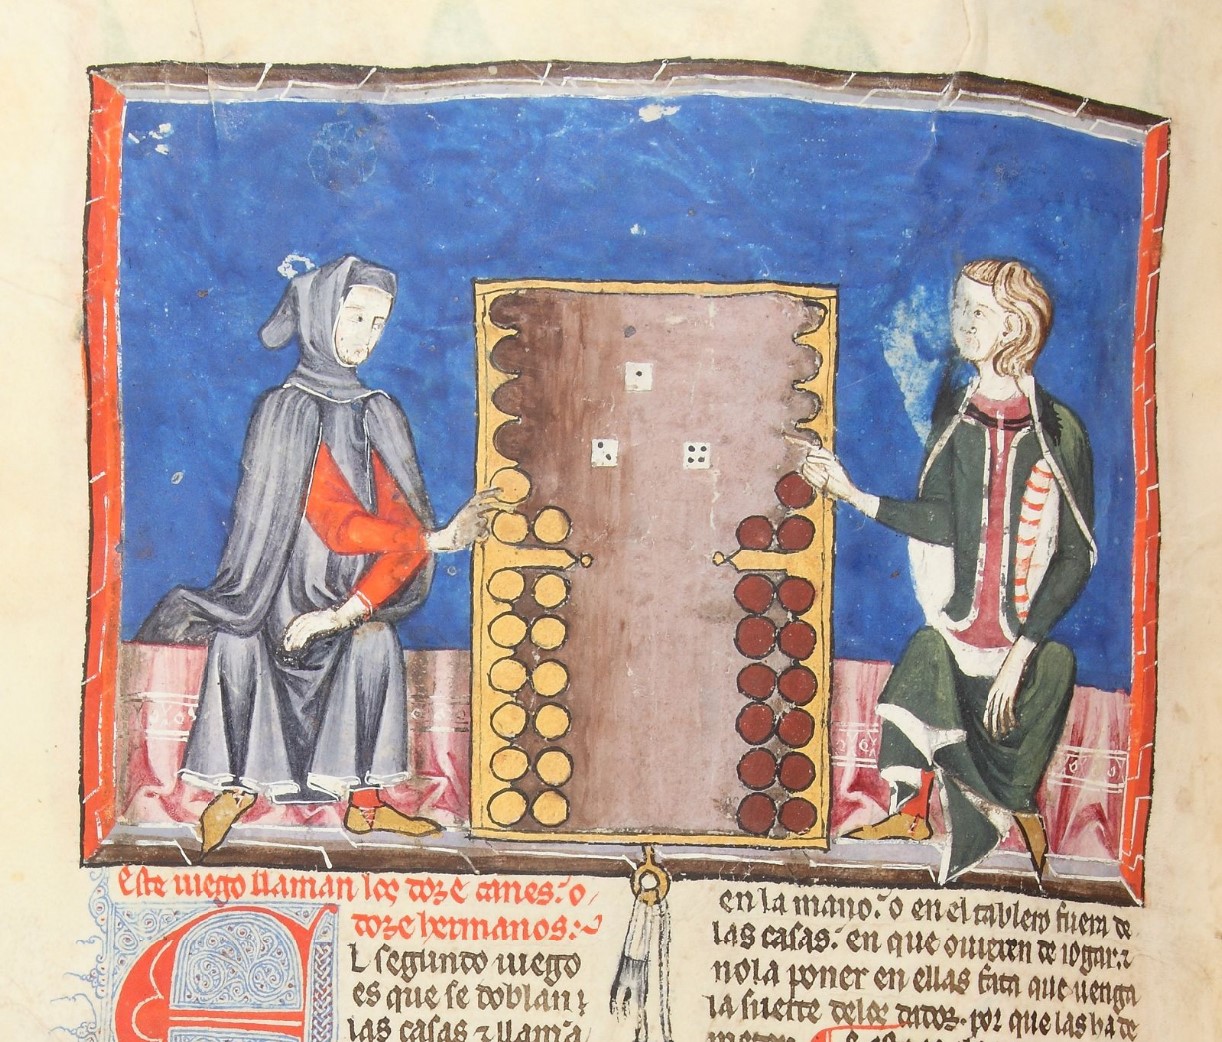 este iuego llaman los doze canes. o
doze hermanos:
El segundo iuego
es que se doblan ⁊
las casas ⁊ llama
en la mano. o en el tablero fuera de
las casas. en que ouieren de iogar. ⁊
no la poner en ellas fata que uenga
la suerte delos dados. por que las ha de